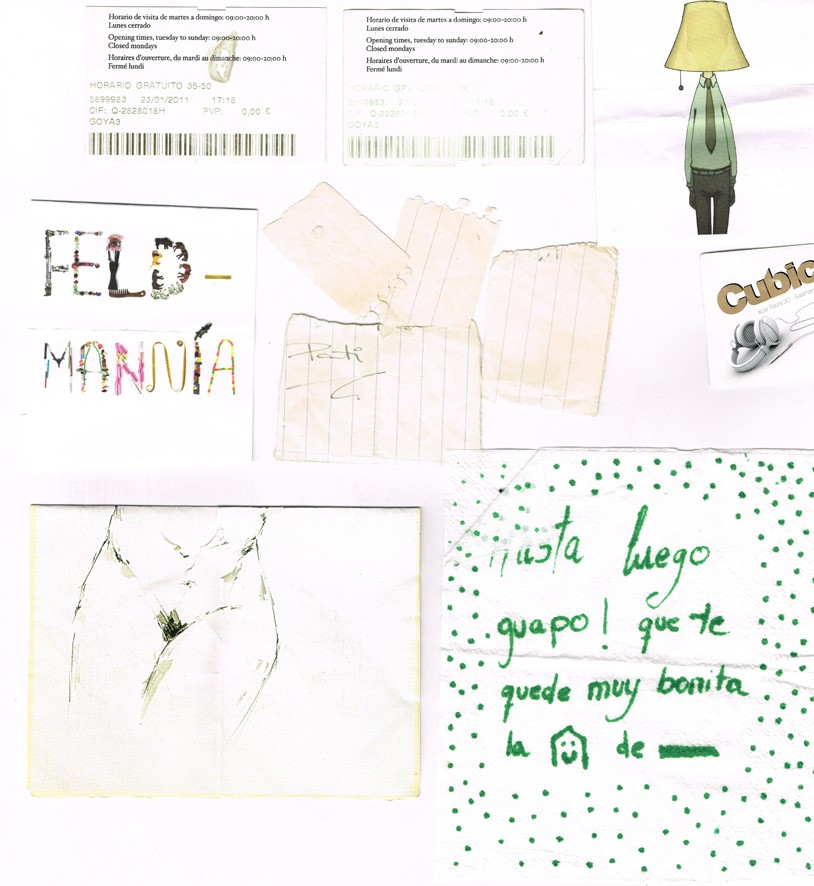 Horario de visita de martes a domingo: 09:00-20:00 h
Lunes cerrado
Opening times, tuesday to sunday: 09:00-20:00 h
Closed mondays
Horaires d'ouverture, du mardi au dimanche: 09:00-20:00 h
Fermé lundi
HORARIO GRATUITO 35-50
5899983 23/01/2011 17:18
CIF: Q-2828018H PVP: 0,00 €
GOYA3
Horario de visita de martes a domingo: 09:00-20:00 h
Lunes cerrado
Opening times, tuesday to sunday: 09:00-20:00 h
Closed mondays
Horaires d'ouverture, du mardi au dimanche: 09:00-20:00 h
Fermé lundi
PVP: 0,00 €
GOYA3
FELD-
MANNÍA
Cubic
Hasta luego
guapo! que te
quede muy bonita
la de